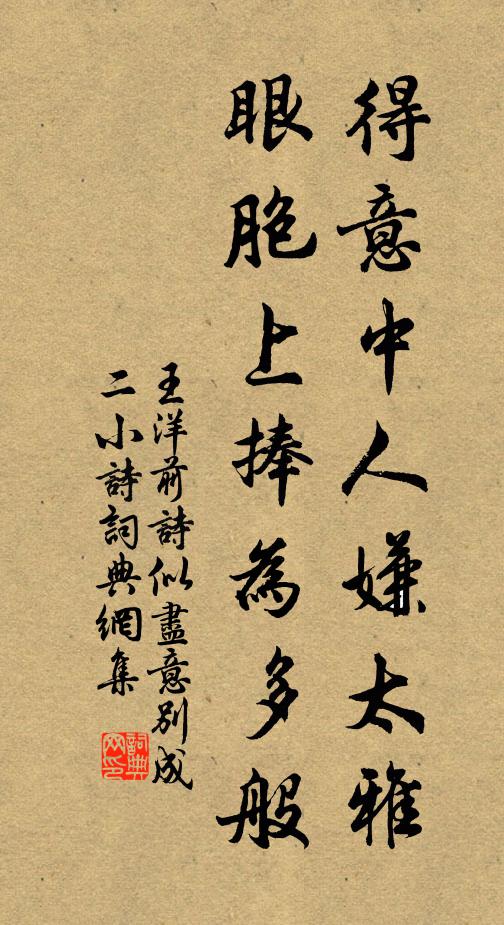 得意中人嫌太雅
眼胞上捧為多般
王洋前詩似盡意別成
二小詩詞典網集
詞典
网印